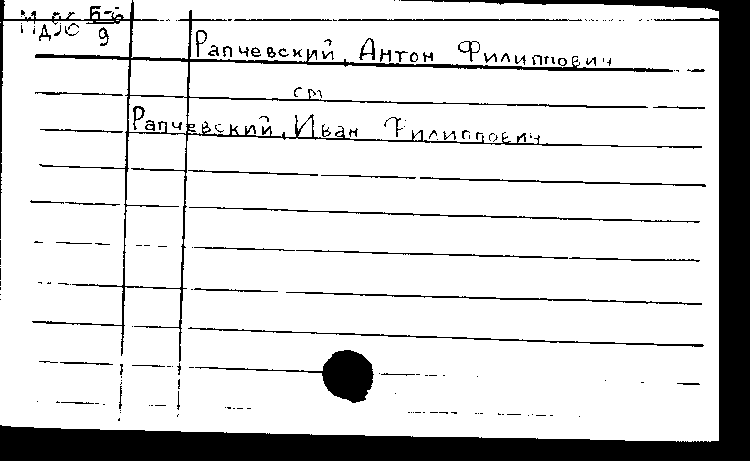 МД96 Б-6/9
Рапчевский, Антон Филиппович
см
Рапчевский, Иван Филиппович